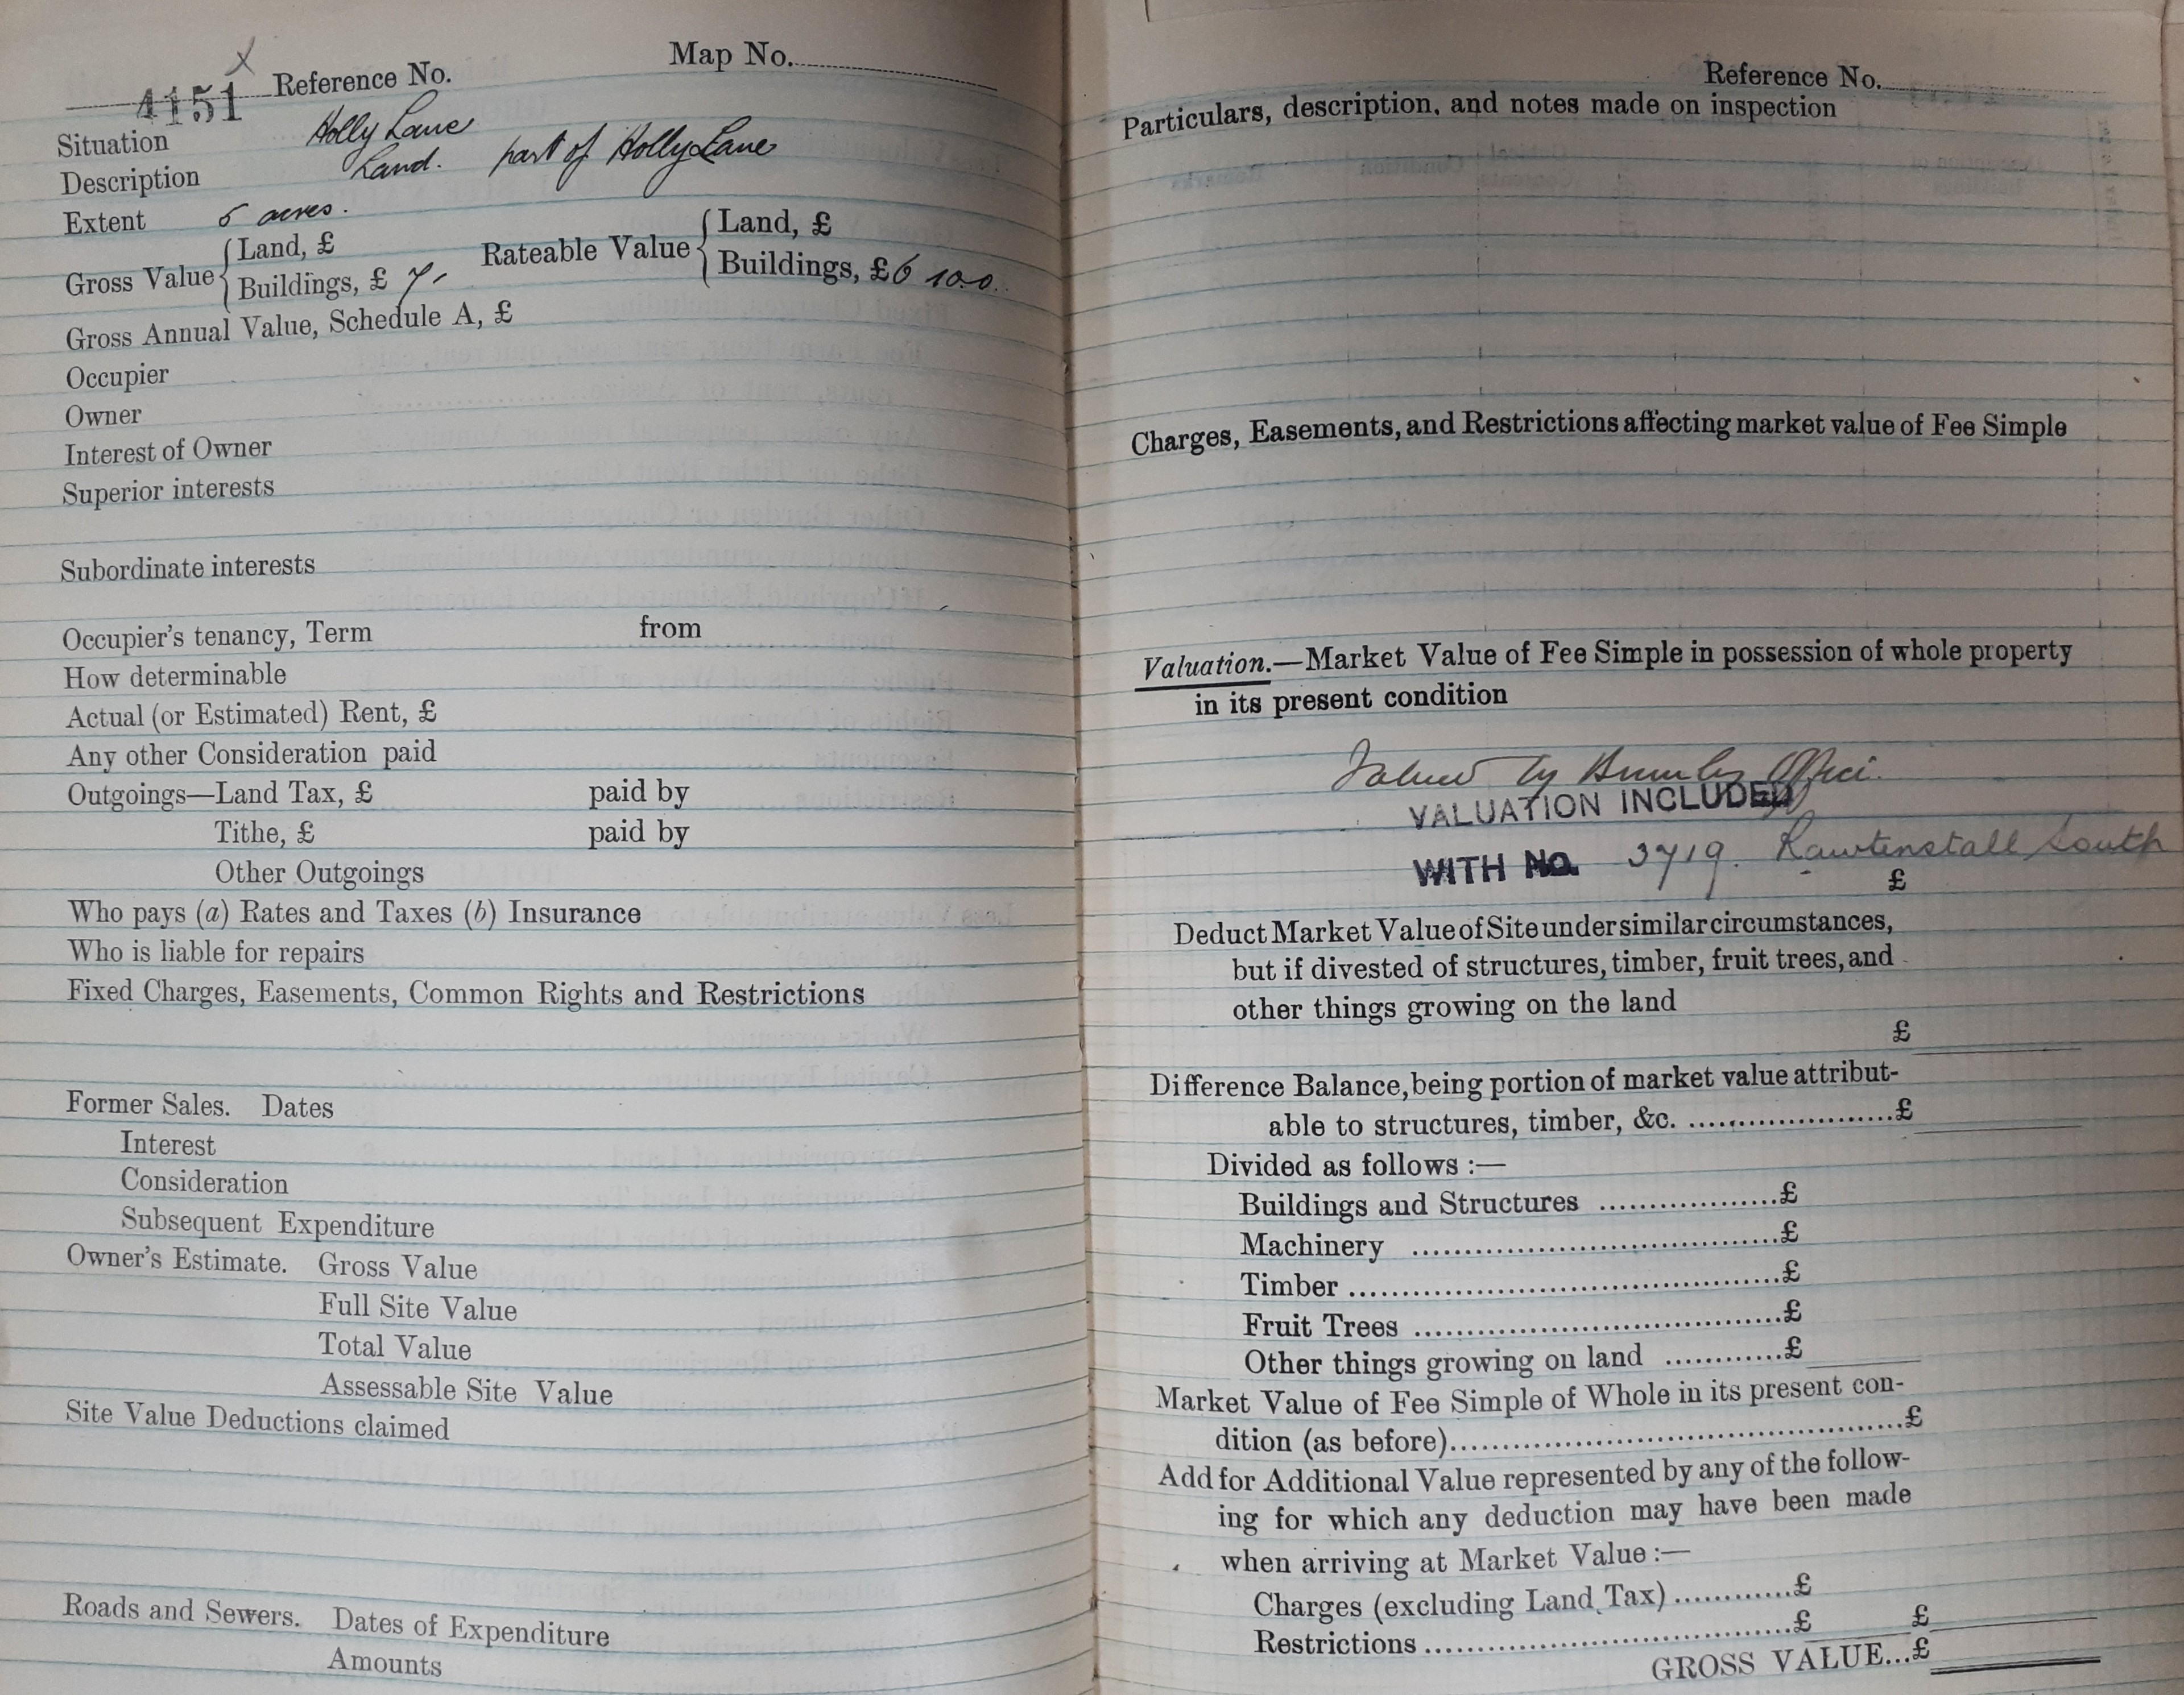 4151 Reference No. Map No.
Situation Holly Lane
Description Land. part of Holly Lane
Extent 5 acres.
Gross Value { Land, £
Buildings, £ 7,-
Rateable Value { Land, £
Buildings, £ 6 10-0.
Gross Annual Value, Schedule A, £
Occupier
Owner
Interest of Owner
Superior interests
Subordinate interests
Occupier's tenancy, Term from
How determinable
Actual (or Estimated) Rent, £
Any other Consideration paid
Outgoings—Land Tax, £ paid by
Tithe, £ paid by
Other Outgoings
Who pays (a) Rates and Taxes (b) Insurance
Who is liable for repairs
Fixed Charges, Easements, Common Rights and Restrictions
Former Sales. Dates
Interest
Consideration
Subsequent Expenditure
Owner's Estimate. Gross Value
Full Site Value
Total Value
Assessable Site Value
Site Value Deductions claimed
Roads and Sewers. Dates of Expenditure
Amounts
Reference No.
Particulars, description, and notes made on inspection
Charges, Easements, and Restrictions affecting market value of Fee Simple
Valuation.—Market Value of Fee Simple in possession of whole property
in its present condition
Valued by Burnley Office.
VALUATION INCLUDED
WITH No. 3719. Rawtenstall South
£
Deduct Market Value of Site under similar circumstances,
but if divested of structures, timber, fruit trees, and
other things growing on the land
£
Difference Balance, being portion of market value attribut-
able to structures, timber, &c. ......................£
Divided as follows :—
Buildings and Structures ..................£
Machinery ......................................£
Timber ............................................£
Fruit Trees ......................................£
Other things growing on land ............£
Market Value of Fee Simple of Whole in its present con-
dition (as before)..............................................£
Add for Additional Value represented by any of the follow-
ing for which any deduction may have been made
when arriving at Market Value :—
Charges (excluding Land Tax) ............£
Restrictions ......................................£ £
GROSS VALUE...£